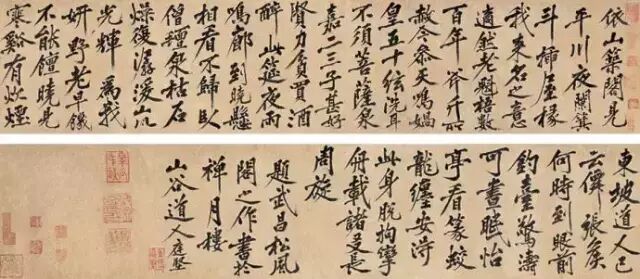 依山築閣見
平川夜闌箕
斗插屋椽
我來名之意
適然老魁梧數
百年斧斤所
赦今參天風鳴媧
皇五十弦洗耳
不須菩薩泉
嘉二三子甚好
賢力貧買酒
醉此筵夜雨
鳴廊到曉懸
相看不歸臥
僧氈泉枯石
燥復潺湲山川
光輝為我
妍野老早饑
不能饘曉見
寒谿有炊煙
東坡道人已
張侯
何時到眼前
釣臺驚濤
可晝眠怡
亭看篆蛟
龍纏安得
此身脫拘攣
舟載諸友長
周旋
題武昌松風
閣之作書於
禪月樓
山谷道人庭堅